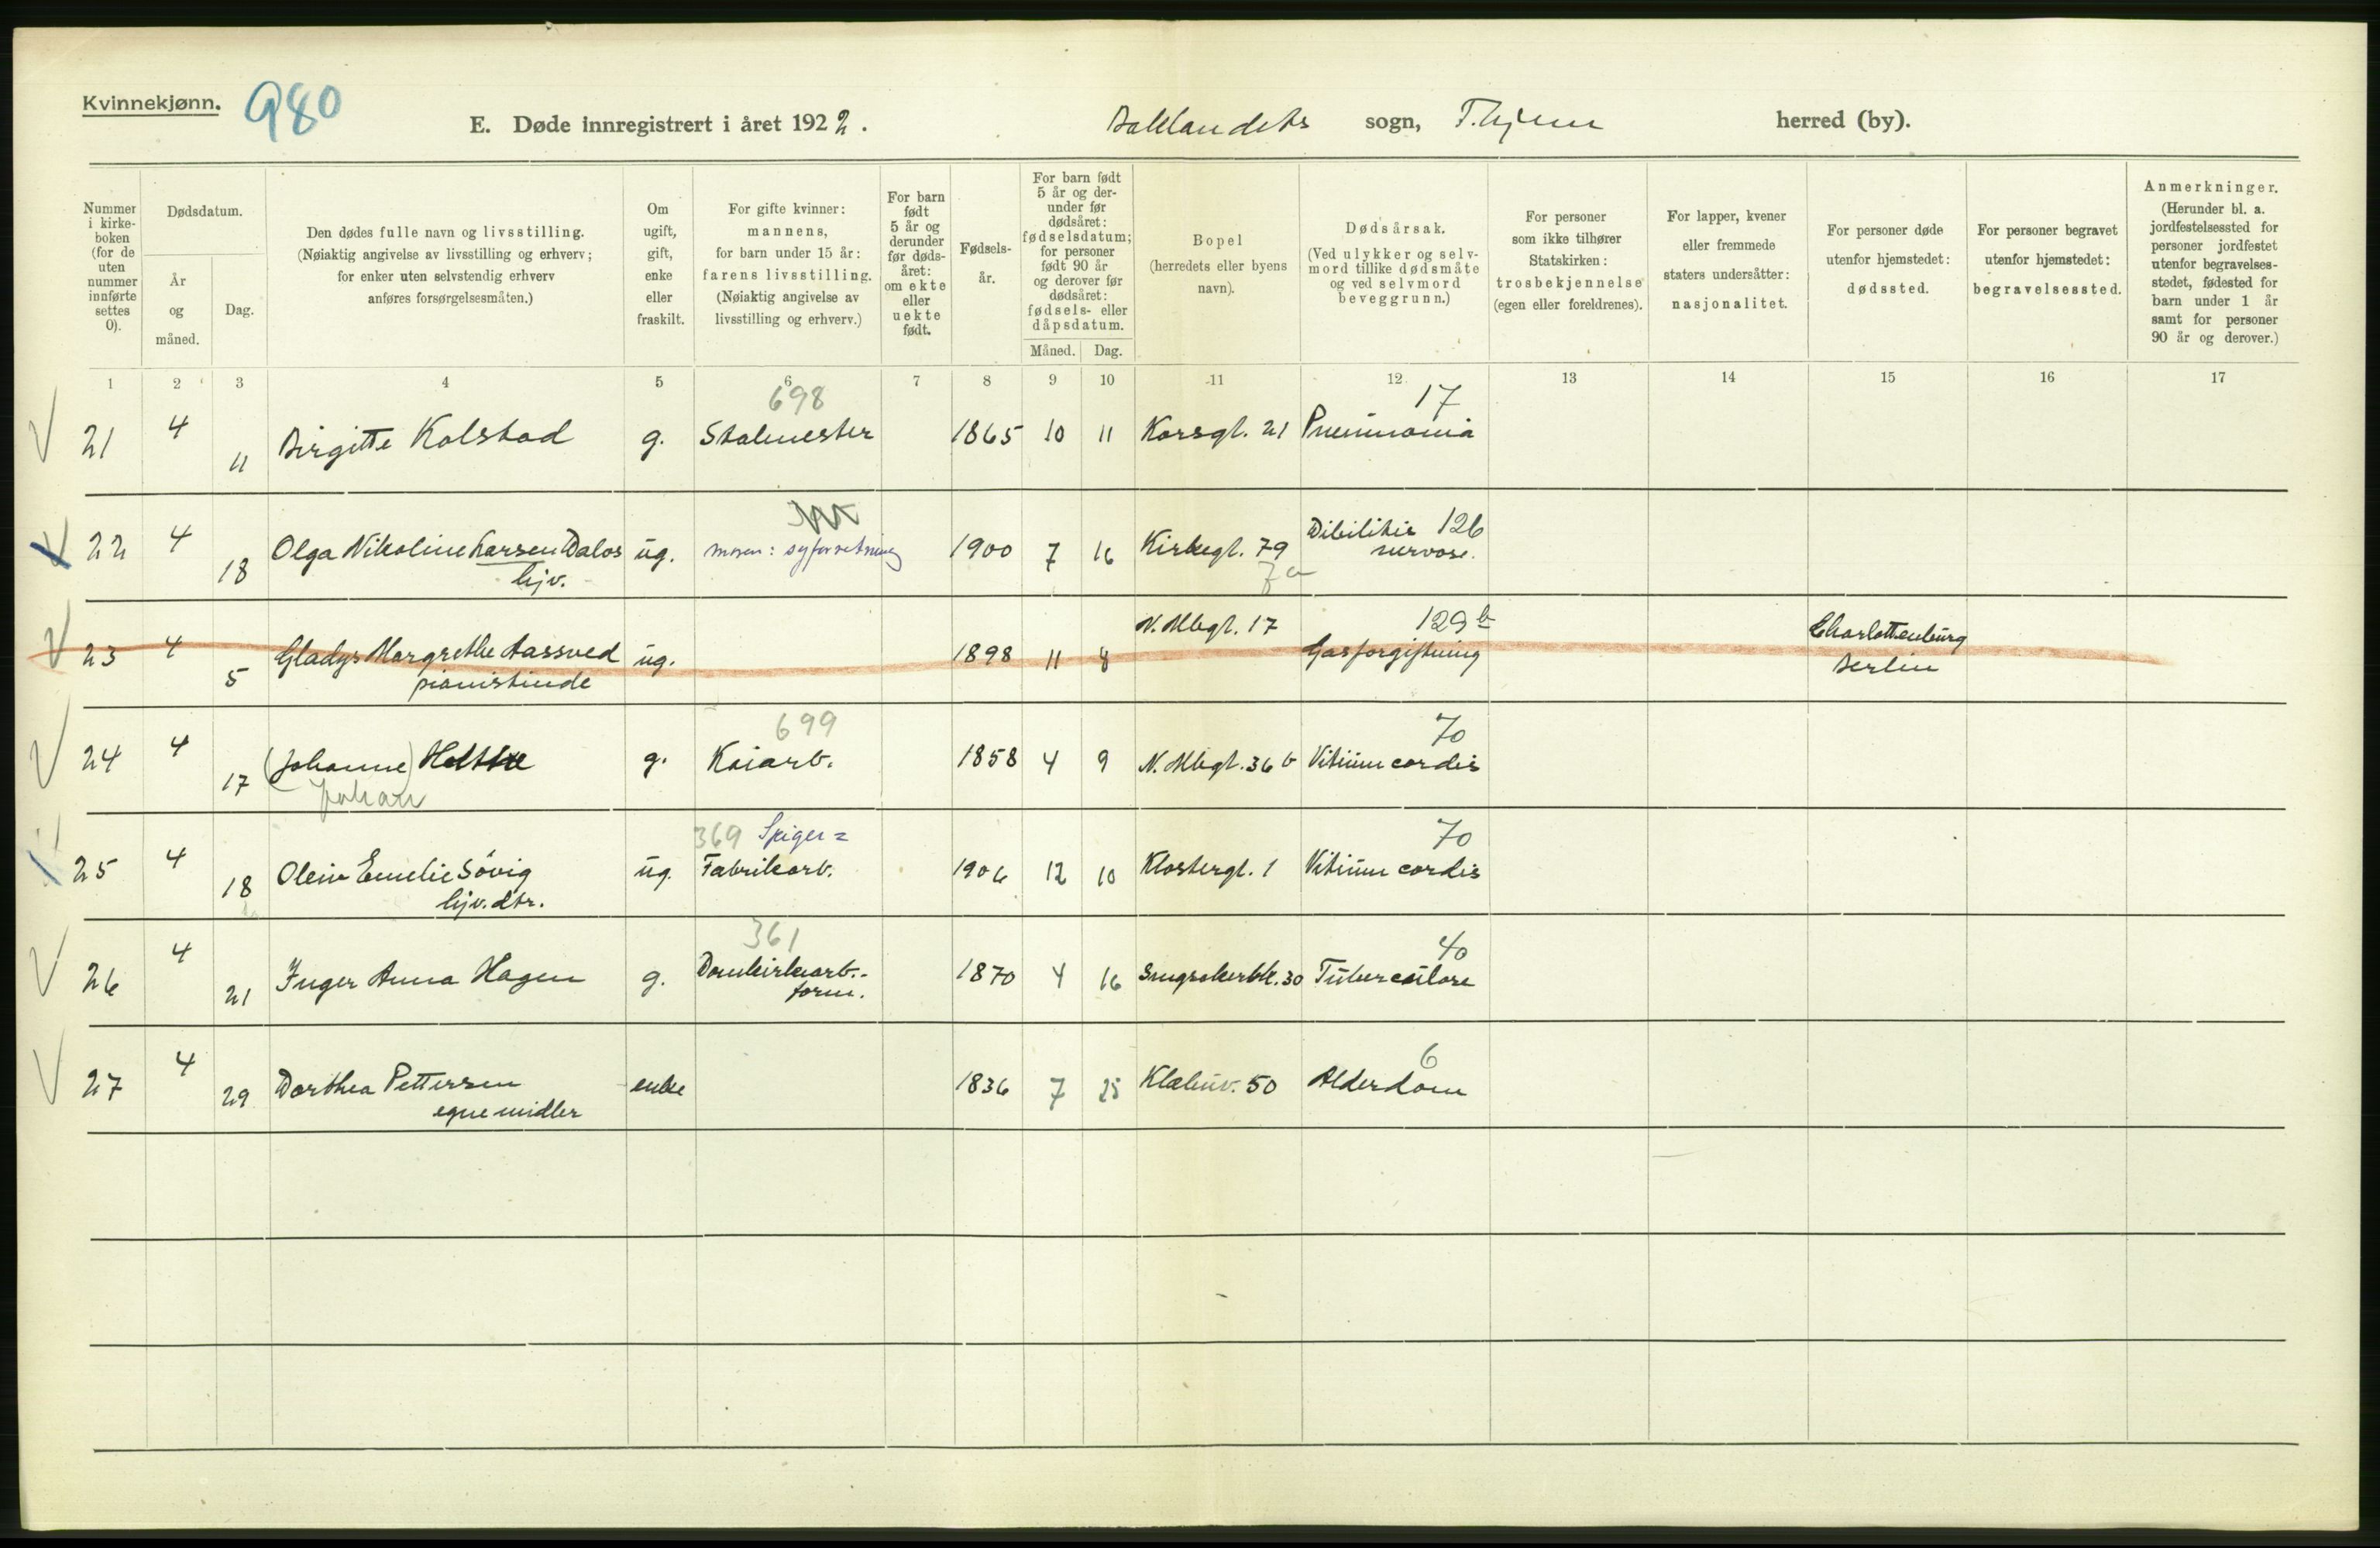 Kvinnekjønn.
980
E. Døde innregistrert i året 1922.
Baklandets sogn, T.hjem herred (by).
Nummer i kirke-boken (for de uten nummer innførte settes 0).
Dødsdatum.
År og måned.
Dag.
Den dødes fulle navn og livsstilling.
(Nøiaktig angivelse av livsstilling og erhverv;
for enker uten selvstendig erhverv
anføres forsørgelsesmåten.)
Om ugift, gift, enke eller fraskilt.
For gifte kvinner:
mannens,
for barn under 15 år:
farens livsstilling.
(Nøiaktig angivelse av
livsstilling og erhverv.)
For barn født 5 år og derunder før døds-året: om ekte eller uekte født.
Fødsels-år.
For barn født 5 år og der-under før dødsåret: fødselsdatum; for personer født 90 år og derover før dødsåret: fødsels- eller dåpsdatum.
Måned.
Dag.
Bopel
(herredets eller byens
navn).
Dødsårsak.
(Ved ulykker og selv-
mord tillike dødsmåte
og ved selvmord
beveggrunn.)
For personer
som ikke tilhører
Statskirken:
trosbekjennelse
(egen eller foreldrenes).
For lapper, kvener
eller fremmede
staters undersåtter:
nasjonalitet.
For personer døde
utenfor hjemstedet:
dødssted.
For personer begravet
utenfor hjemstedet:
begravelsessted.
Anmerkninger.
(Herunder bl. a.
jordfestelsessted for
personer jordfestet
utenfor begravelses-
stedet, fødested for
barn under 1 år
samt for personer
90 år og derover.)
1 2 3 4 5 6 7 8 9 10 11 12 13 14 15 16 17
698 17
21 4 11 Birgitte Kolstad g. Stalmester 1865 10 11 Korsgt. 21 Pneumonia
22 4 18 Olga Nikoline Larsen Dalos ug. moren: syforretning 1900 7 16 Kirkegt. 79 Dibilitis 126
hjv. nervose.
7a
N. Mbgt. 17 129 b Charlottenburg
23 4 5 Gladys Margrethe Aassved ug. 1898 11 8 Gasforgiftning Berlin
pianistinde
699 70
24 4 17 (Johanne) g. Kaiarb. 1858 4 9 N. Mbgt. 36 b Vitium cordis
Johan
369 Spiger= 70
25 4 18 Oleiv Emelie Søvig ug. Fabrikarb. 1906 12 10 Klostergt. 1 Vitium cordis
hjv. dtr.
361 40
26 4 21 Inger Anna Hagen g. Domkirkearb.- 1870 4 16 30 Tuberculose
form.
6
27 4 29 Dorthea Pettersen enke 1836 7 25 Klæbuv. 50 Alderdom
egne midler